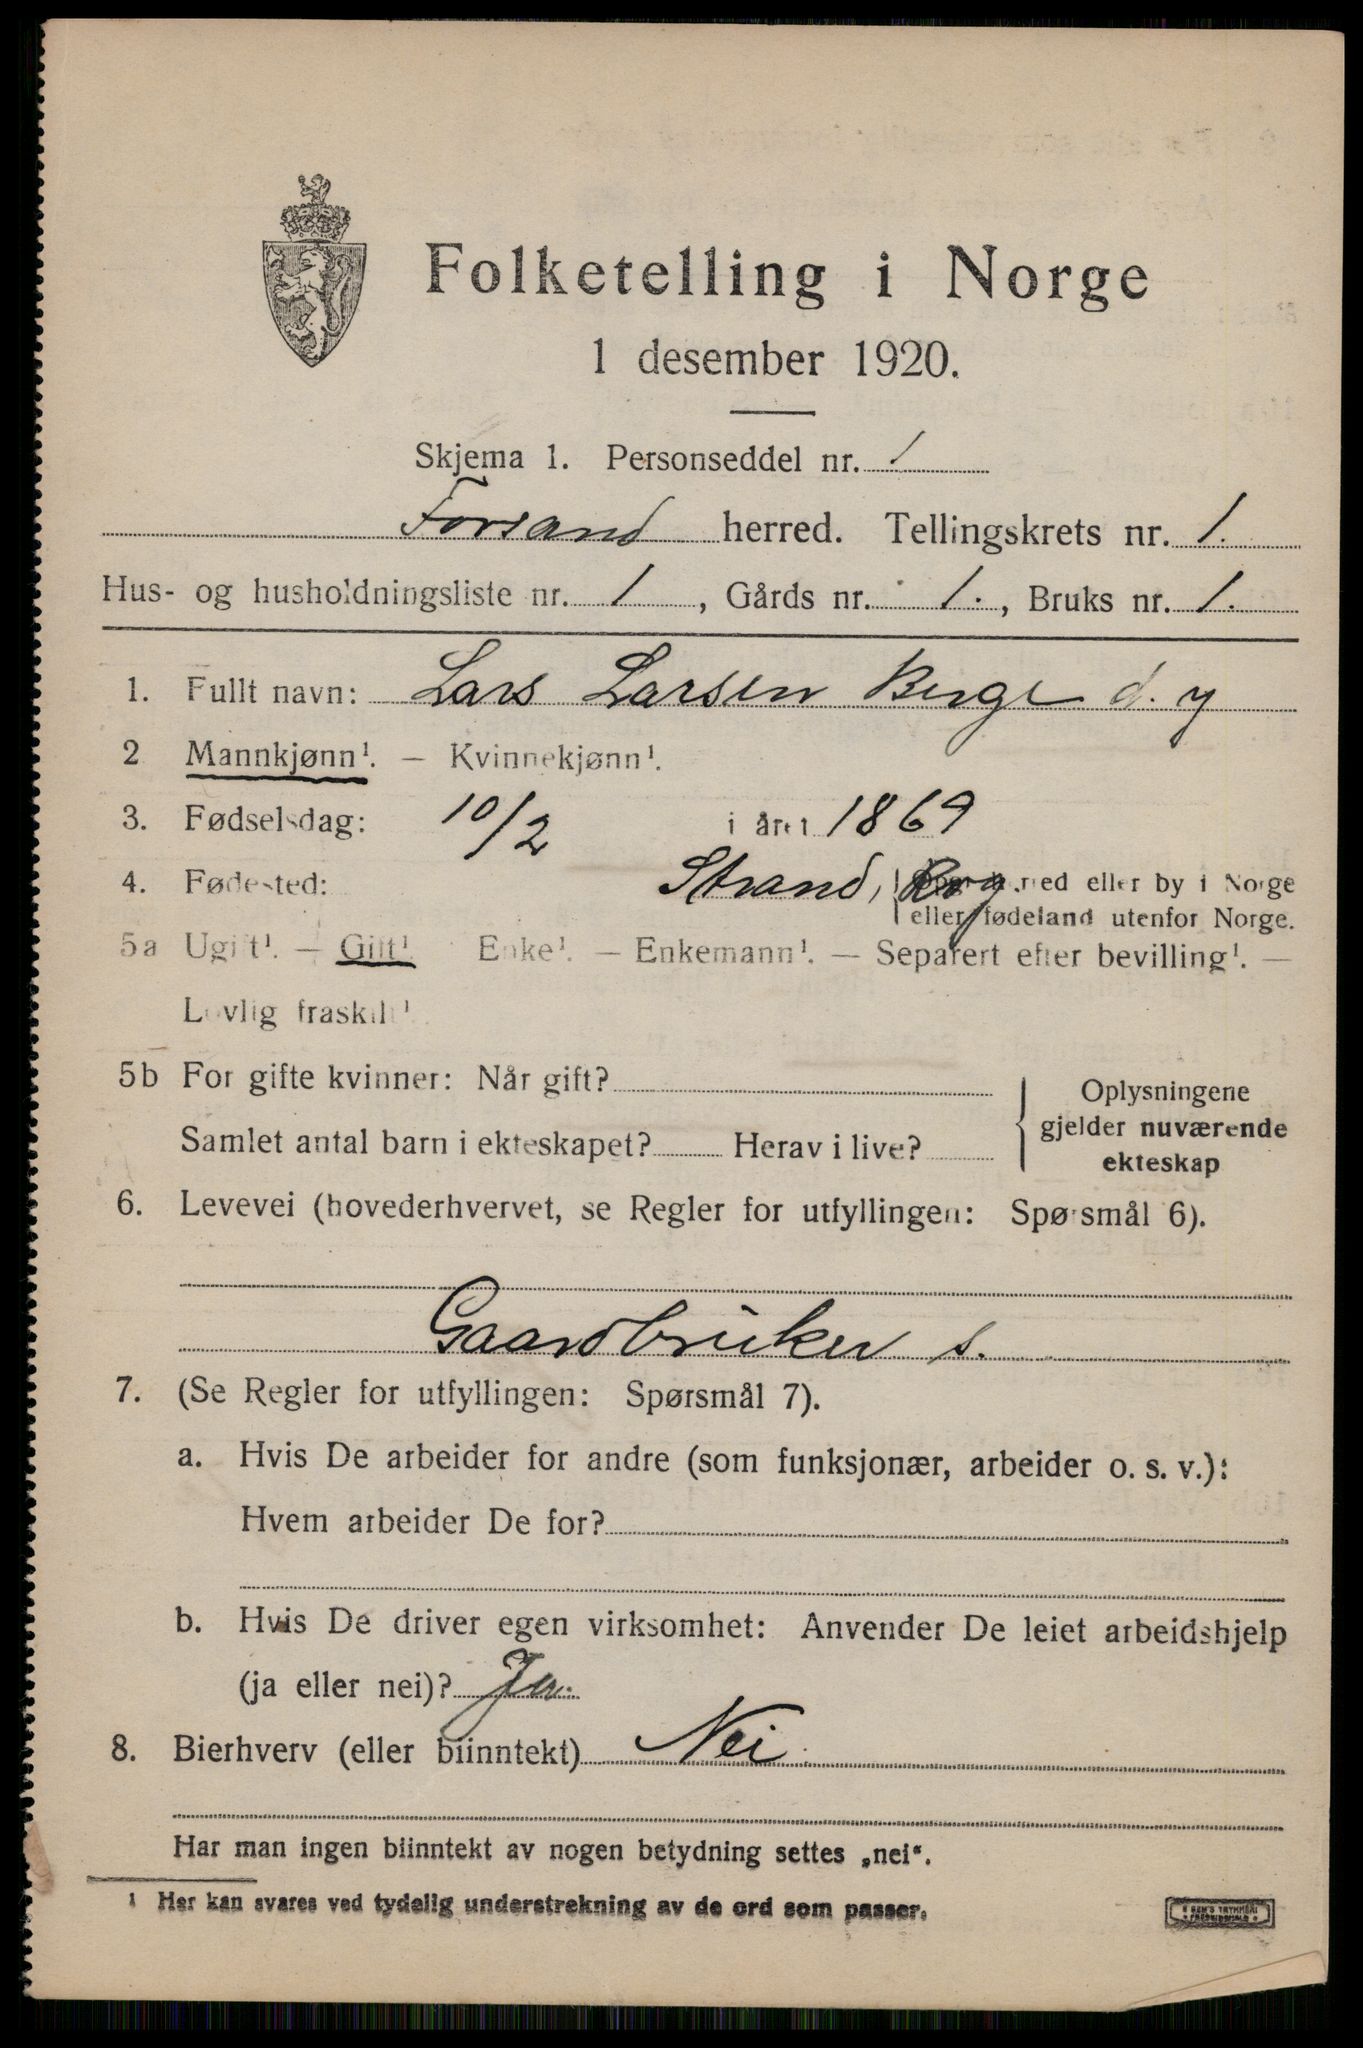 Folketelling i Norge
1 desember 1920.
Skjema 1. Personseddel nr. 1
Forsand herred. Tellingskrets nr. 1.
Hus- og husholdningsliste nr. 1, Gårds nr. 1., Bruks nr. 1.
1. Fullt navn: Lars Larsen Berge d. y
2 Mannkjønn¹. — Kvinnekjønn¹.
3. Fødselsdag: 10/2 i året 1869
4. Fødested: Strand, Rog. herred eller by i Norge
eller fødeland utenfor Norge.
5a Ugift¹. — Gift¹. Enke¹. — Enkemann¹. — Separert efter bevilling¹. —
Lovlig fraskilt¹
5b For gifte kvinner: Når gift?
Samlet antal barn i ekteskapet? Herav i live?
Oplysningene
gjelder nuværende
ekteskap
6. Levevei (hovederhvervet, se Regler for utfyllingen: Spørsmål 6).
Gaardbruker s.
7. (Se Regler for utfyllingen: Spørsmål 7).
a. Hvis De arbeider for andre (som funksjonær, arbeider o. s. v.):
Hvem arbeider De for?
b. Hvis De driver egen virksomhet: Anvender De leiet arbeidshjelp
(ja eller nei)? Ja.
8. Bierhverv (eller biinntekt) Nei
Har man ingen biinntekt av nogen betydning settes „nei“.
¹ Her kan svares ved tydelig understrekning av de ord som passer.